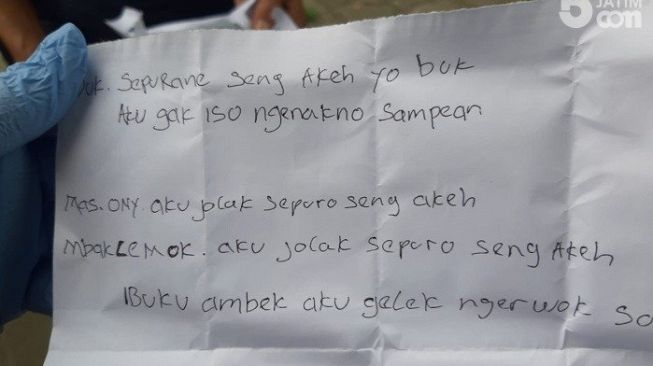 5 JATIM
.com
Buk. Sepurane seng Akeh yo buk
Aku gak iso ngenakno Sampean
Mas. ONY. aku jolak sepuro seng akeh
MbakLEMOK. aku jolak sepuro seng Akeh
IBUKU ambek aku gelek ngerwok